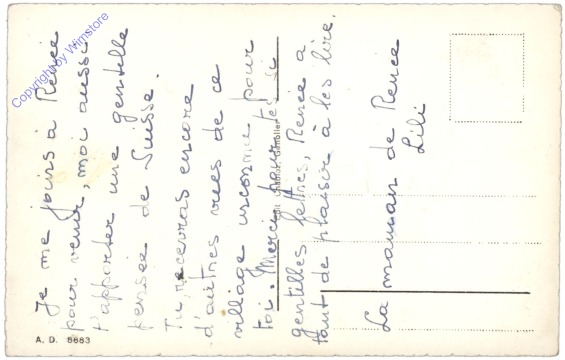 Je me joins à Renée
pour venir, moi aussi
t'apporter une gentille
pensée de Suisse.
Tu recevras encore
d'autres vues de ce
village inconnu pour
toi. Merci pour tes si
gentilles lettres, Renée a
tant de plaisir à les lire.
La maman de Renée
Lili
A. D. 8683
Copyright by Wimstore